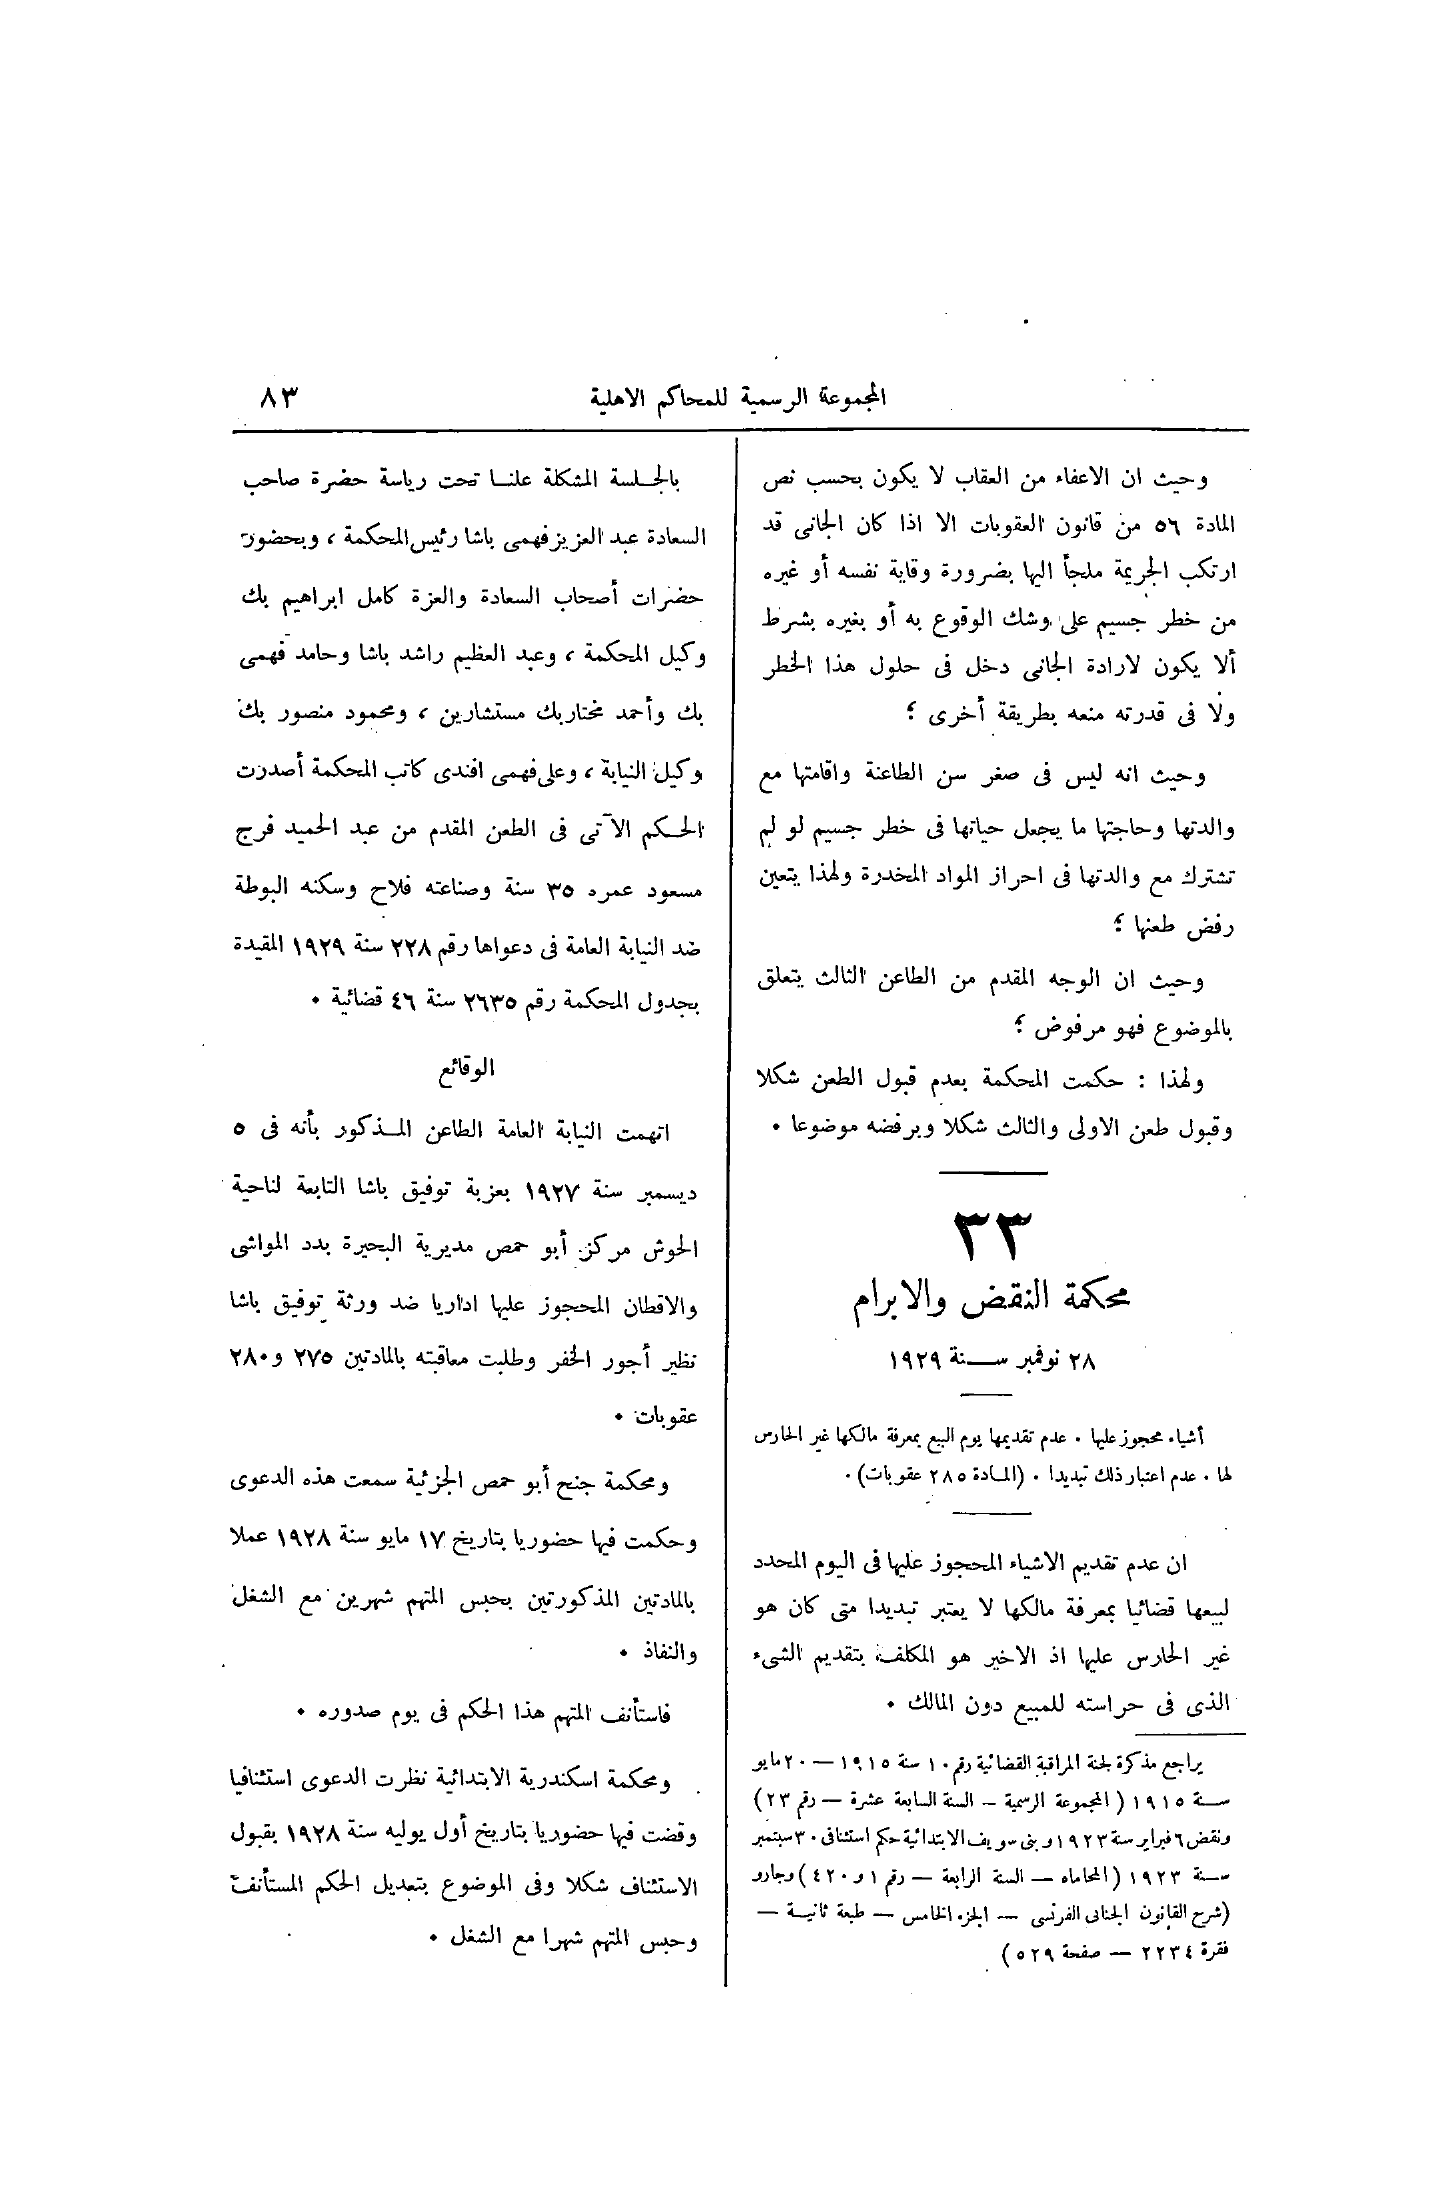 المجموعة الرسمية للمحاكم الاهلية
٨٣
وحيث ان الاعفاء من العقاب لا يكون بحسب نص
المادة ٥٦ من قانون العقوبات الا اذا كان الجانى قد
ارتكب الجريمة ملجأ اليها بضرورة وقاية نفسه أو غيره
من خطر جسيم على وشك الوقوع به أو بغيره بشرط
ألا يكون لارادة الجانى دخل فى حلول هذا الخطر
ولا فى قدرته منعه بطريقة أخرى ؛
وحيث انه ليس فى صغر سن الطاعنة واقامتها مع
والدتها وحاجتها ما يجعل حياتها فى خطر جسيم لو لم
تشترك مع والدتها فى احراز المواد المخدرة ولهذا يتعين
رفض طعنها ؛
وحيث ان الوجه المقدم من الطاعن الثالث يتعلق
بالموضوع فهو مرفوض ؛
ولهذا : حكمت المحكمة بعدم قبول الطعن شكلا
وقبول طعن الاولى والثالث شكلا وبرفضه موضوعا .
٣٣
محكمة النقض والابرام
٢٨ نوفمبر سـنة ١٩٢٩
أشياء محجوز عليها . عدم تقديمها يوم البيع بمعرفة مالكها غير الحارس
لها . عدم اعتبار ذلك تبديدا . (المـادة ٢٨٥ عقوبات) .
ان عدم تقديم الاشياء المحجوز عليها فى اليوم المحدد
لبيعها قضائيا بمعرفة مالكها لا يعتبر تبديدا متى كان هو
غير الحارس عليها اذ الاخير هو المكلف بتقديم الشىء
الذى فى حراسته للمبيع دون المالك .
يراجع مذكرة لجنة المراقبة القضائية رقم ١٠ سنة ١٩١٥ — ٢٠ مايو
سـنة ١٩١٥ ( المجموعة الرسمية — السنة السابعة عشرة — رقم ٢٣ )
ونقض ٦ فبراير سنة ١٩٢٣ وبنى سويف الابتدائية حكم استئنافى ٣٠ سبتمبر
سـنة ١٩٢٣ ( المحاماه — السنة الرابعة — رقم ١ و ٤٢٠ ) وجارو
(شرح القانون الجنائى الفرنسى — الجزء الخامس — طبعة ثانيـة —
فقرة ٢٢٣٤ — صفحة ٥٢٩ )
بالجلـسة المشكلة علنـا تحت رياسة حضرة صاحب
السعادة عبد العزيز فهمى باشا رئيس المحكمة ، وبحضور
حضرات أصحاب السعادة والعزة كامل ابراهيم بك
وكيل المحكمة ، وعبد العظيم راشد باشا وحامد فهمى
بك وأحمد مختار بك مستشارين ، ومحمود منصور بك
وكيل النيابة ، وعلى فهمى افندى كاتب المحكمة أصدرت
الحـكم الآتى فى الطعن المقدم من عبد الحميد فرج
مسعود عمره ٣٥ سنة وصناعته فلاح وسكنه البوطة
ضد النيابة العامة فى دعواها رقم ٢٢٨ سنة ١٩٢٩ المقيدة
بجدول المحكمة رقم ٢٦٣٥ سنة ٤٦ قضائية .
الوقائع
اتهمت النيابة العامة الطاعن المـذكور بأنه فى ٥
ديسمبر سنة ١٩٢٧ بعزبة توفيق باشا التابعة لناحية
الحوش مركز أبو حمص مديرية البحيرة بدد المواشى
والاقطان المحجوز عليها اداريا ضد ورثة توفيق باشا
نظير أجور الخفر وطلبت معاقبته بالمادتين ٢٧٥ و ٢٨٠
عقوبات .
ومحكمة جنح أبو حمص الجزئية سمعت هذه الدعوى
وحكمت فيها حضوريا بتاريخ ١٧ مايو سنة ١٩٢٨ عملا
بالمادتين المذكورتين بحبس المتهم شهرين مع الشغل
والنفاذ .
فاستأنف المتهم هذا الحكم فى يوم صدوره .
ومحكمة اسكندرية الابتدائية نظرت الدعوى استئنافيا
وقضت فيها حضوريا بتاريخ أول يوليه سنة ١٩٢٨ بقبول
الاستئناف شكلا وفى الموضوع بتعديل الحكم المستأنف
وحبس المتهم شهرا مع الشغل .